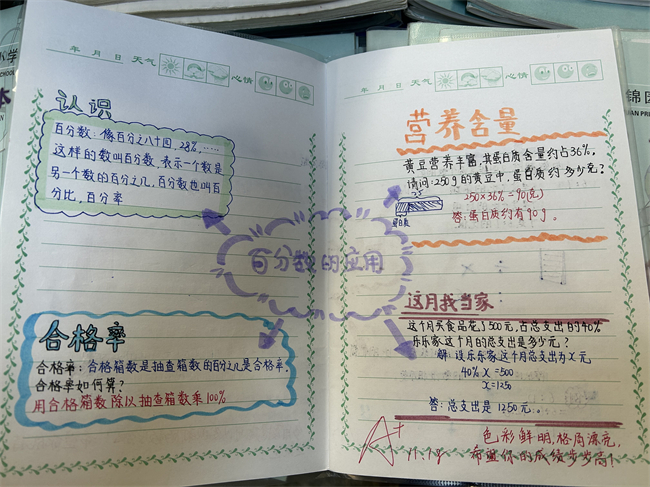 年 月 日 天气 心情
认识
百分数：像百分之八十四，28%，……
这样的数叫百分数，表示一个数是
另一个数的百分之几，百分数也叫百
分比，百分率
百分数的应用
合格率
合格率：合格箱数是抽查箱数的百分之几是合格率，
合格率如何算？
用合格箱数除以抽查箱数乘100%
年 月 日 天气 心情
营养含量
黄豆营养丰富，其蛋白质含量约占36%，
请问：250g的黄豆中，蛋白质约多少克？
250×36%=90(克)
蛋白质
答：蛋白质约有90g。
这月我当家
这个月买食品花了500元，占总支出的40%
乐乐家这个月的总支出是多少元？
解：设乐乐家这个月总支出为x元
40%x=500
x=1250
答：总支出是1250元。
A+
11.18
色彩鲜明，格局漂亮，
希望你的成绩步步高！
小学
SCHOOL
本
锦